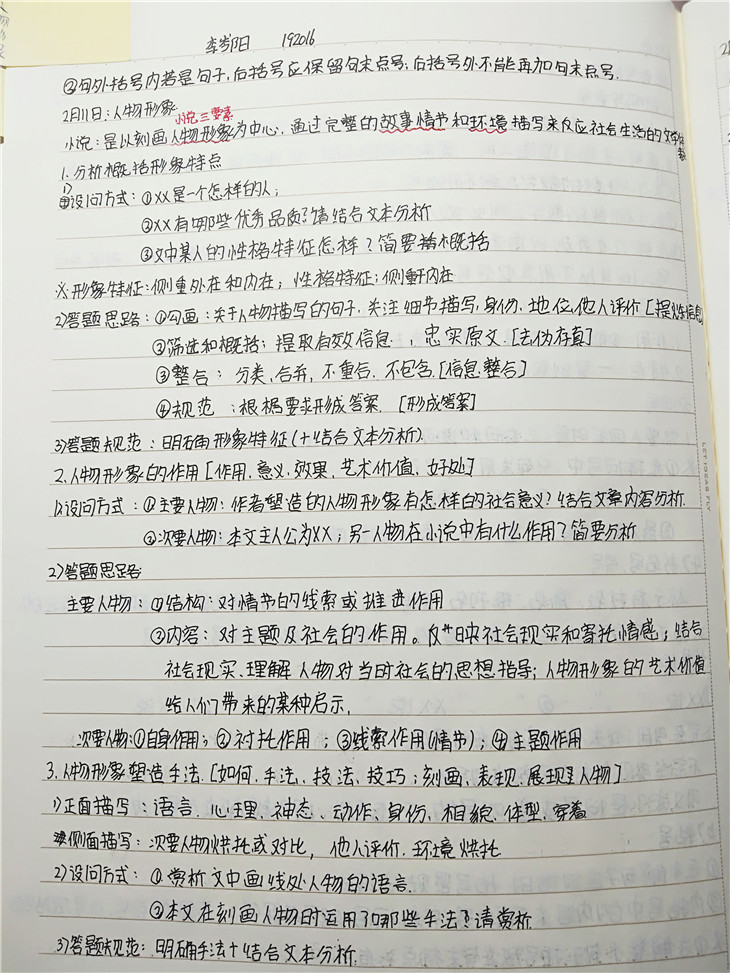 李岁阳 192016
②句外括号内若是句子,后括号应保留句末点号,后括号外不能再加句末点号.
2月11日:人物形象
小说三要素
小说:是以刻画人物形象为中心,通过完整的故事情节和环境描写来反应社会生活的文学体裁
1.分析概括形象特点
1)设问方式:①XX是一个怎样的人;
②XX有哪些优秀品质?请结合文本分析
③文中某人的性格特征怎样?简要概括
※形象特征:侧重外在和内在;性格特征:侧重内在
2)答题思路:①勾画:关于人物描写的句子.关注细节描写,身份、地位,他人评价[提炼信息]
②筛选和概括:提取有效信息,忠实原文.[去伪存真]
③整合:分类,合并,不重合.不包含.[信息整合]
④规范:根据要求形成答案.[形成答案]
3)答题规范:明确形象特征(+结合文本分析).
2.人物形象的作用[作用.意义.效果.艺术价值.好处]
1)设问方式:①主要人物:作者塑造的人物形象有怎样的社会意义?结合文章内容分析.
②次要人物:本文主人公为XX;另一人物在小说中有什么作用?简要分析
2)答题思路
主要人物:①结构:对情节的线索或推进作用
②内容:对主题及社会的作用。反映社会现实和寄托情感;结合
社会现实、理解人物对当时社会的思想指导;人物形象的艺术价值
给人们带来的某种启示.
次要人物:①自身作用;②衬托作用;③线索作用(情节);④主题作用
3.人物形象塑造手法.[如何.手法、技法、技巧;刻画、表现.展现人物]
1)正面描写:语言、心理、神态、动作、身份、相貌、体型、穿着
侧面描写:次要人物烘托或对比,他人评价.环境烘托
2)设问方式:①赏析文中画线处人物的语言.
②本文在刻画人物时运用了哪些手法?请赏析
3)答题规范:明确手法+结合文本分析.
LET IDEAS FLY